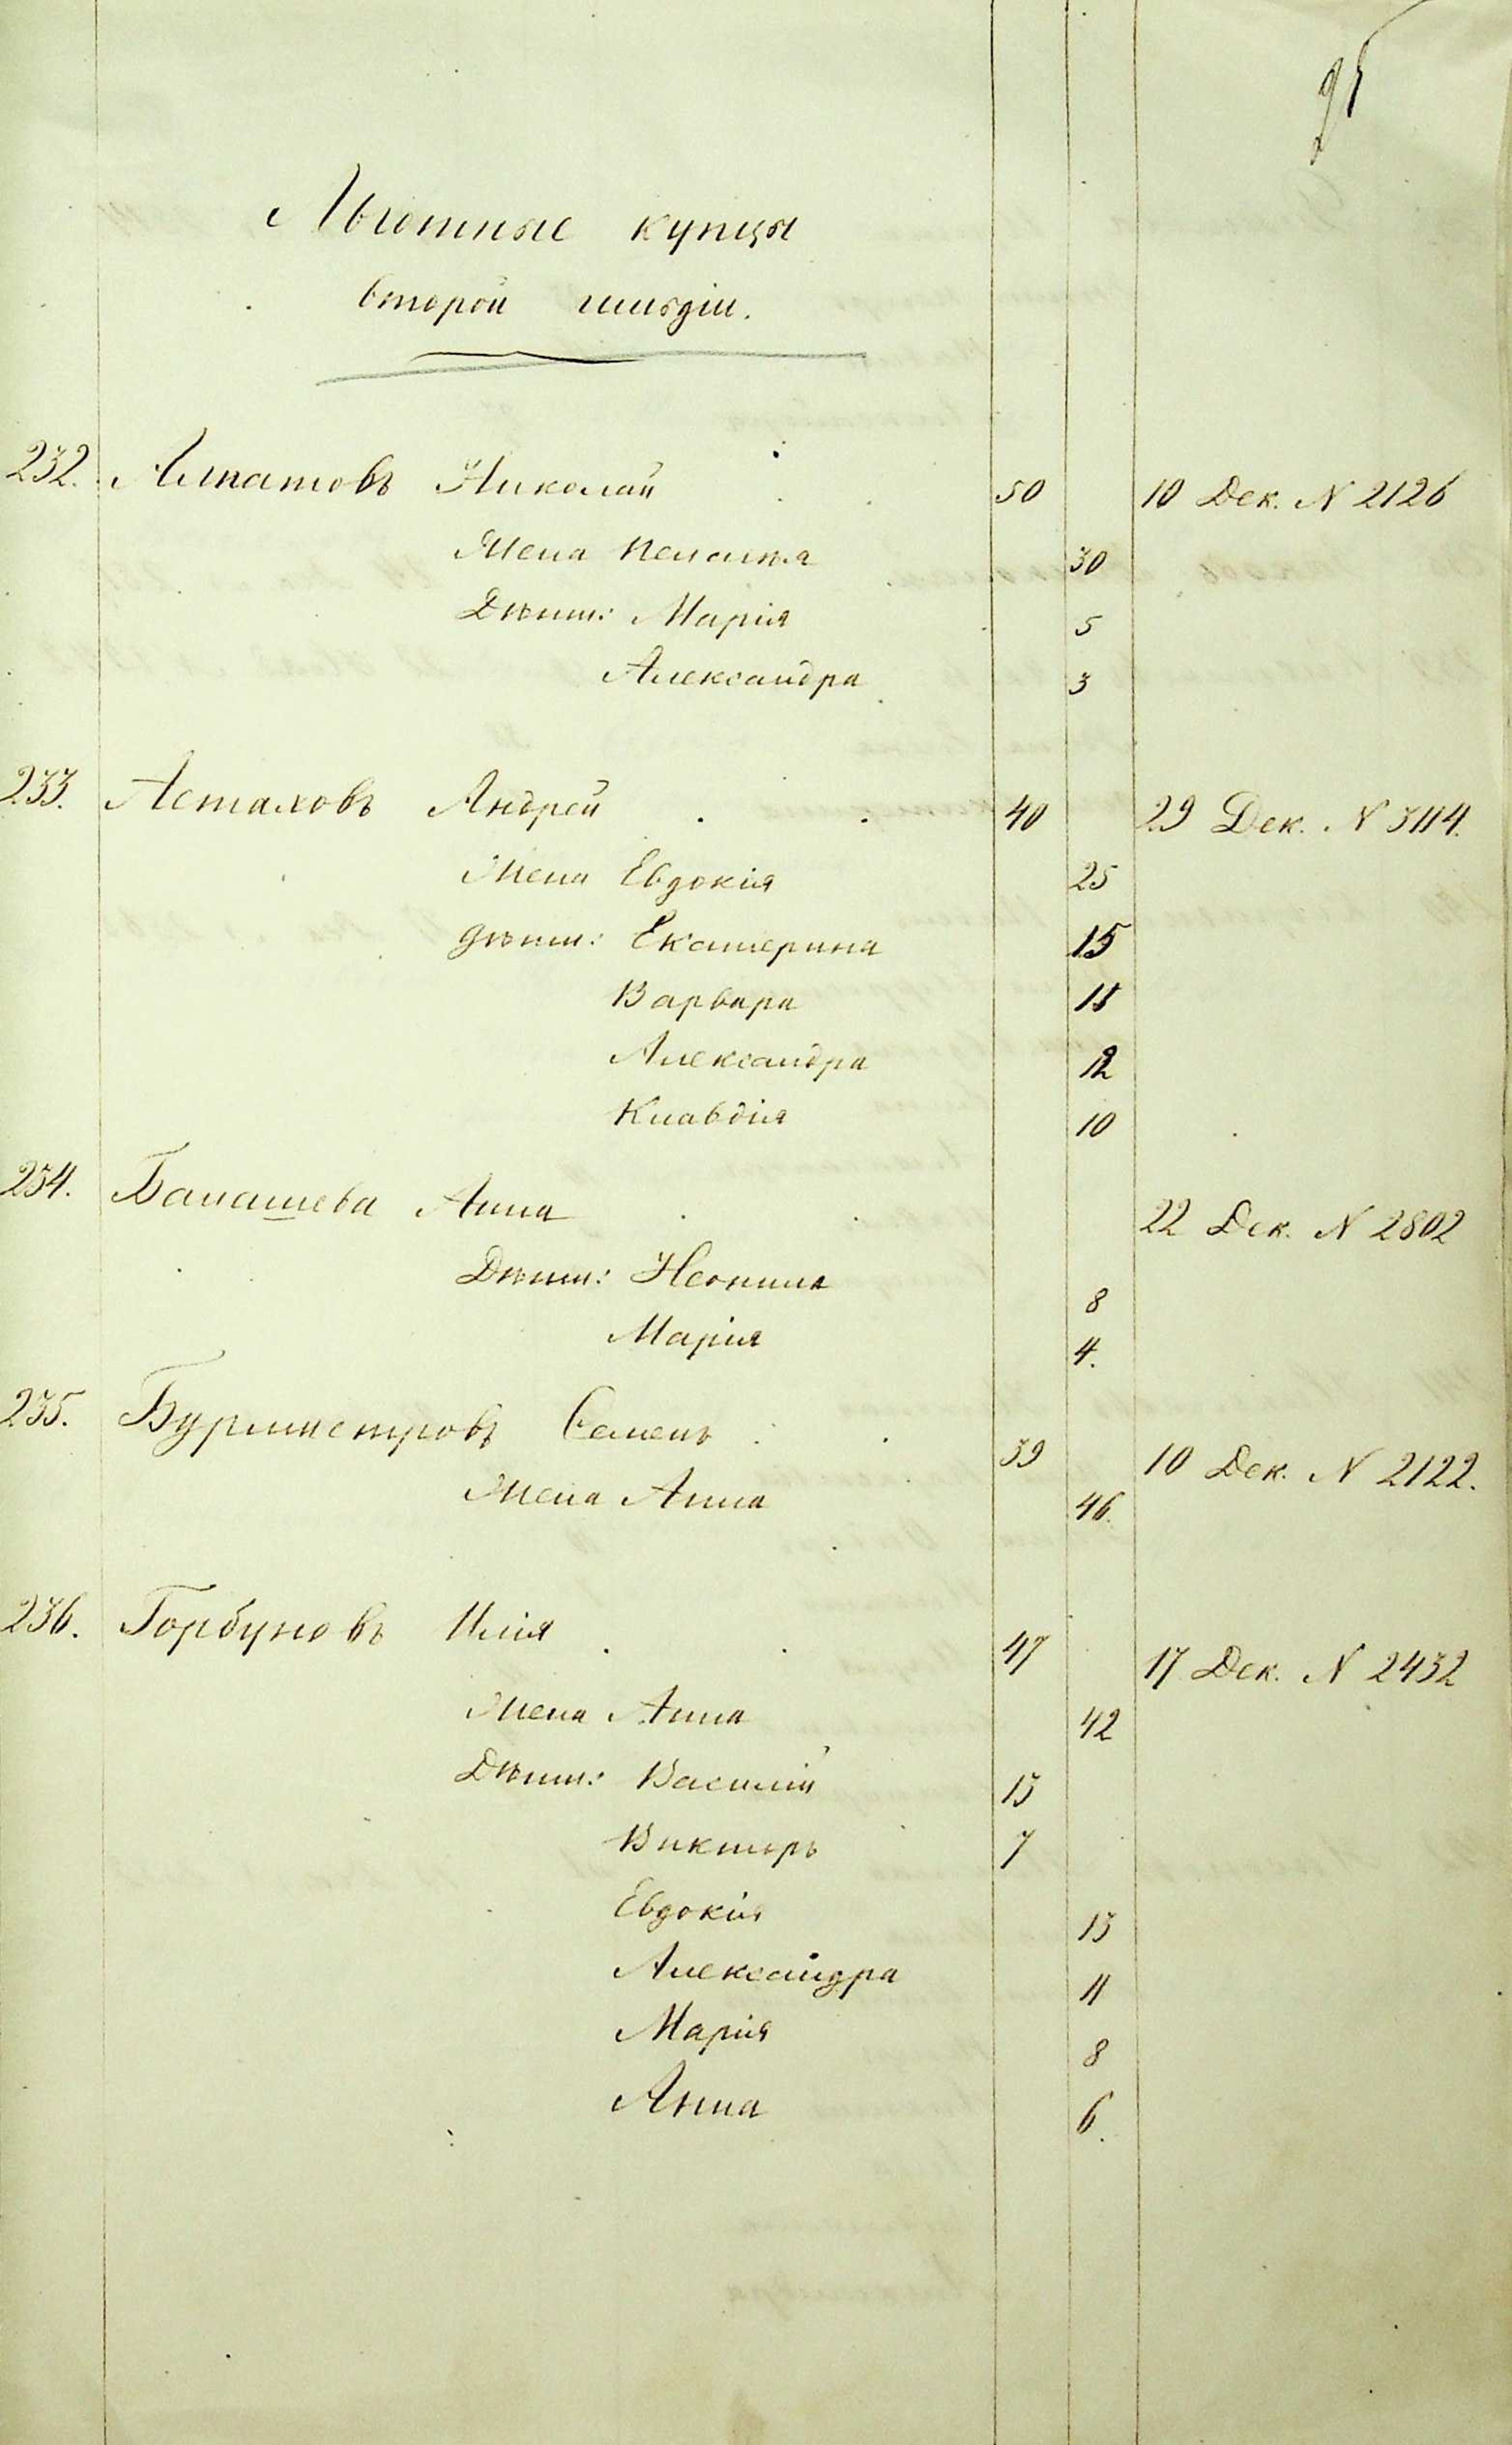 95
Льготные купцы
второй гильдіи.
232. Алпатовъ Николай 50 10 Дек. N 2126
Жена Пелагѣя 30
Дѣти: Марія 5
Александра 3
233. Астаховъ Андрей 40 29 Дек. N 3114.
Жена Евдокія 25
дѣти: Екатерина 15
Варвара 15
Александра 12
Клавдія 10
234. Балашева Анна 22 Дек. N 2802
Дѣти: Неонила 8
Марія 4.
235. Бурмистровъ Семенъ 39 10 Дек. N 2122.
Жена Анна 46.
236. Горбуновъ Илія 47 17 Дек. N 2432
Жена Анна 42
Дѣти: Василій 13
Викторъ 7
Евдокія 13
Александра 11
Марія 8
Анна 6.